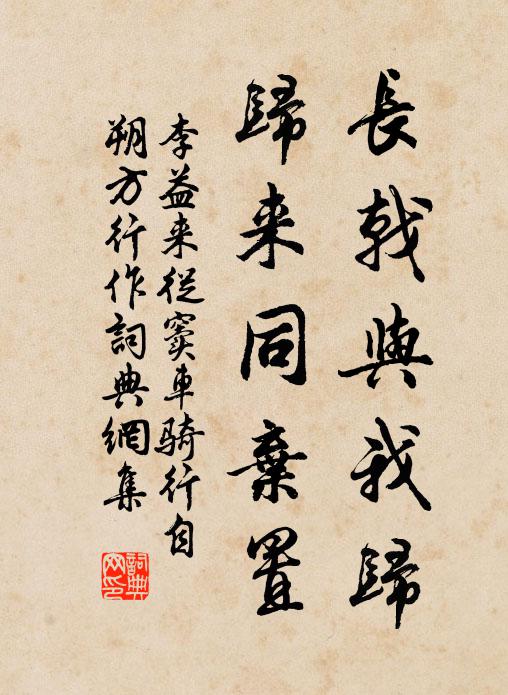 長戟與我歸
歸来同棄置
李益来從竇車騎行自
朔方行作詞典網集
詞典網印